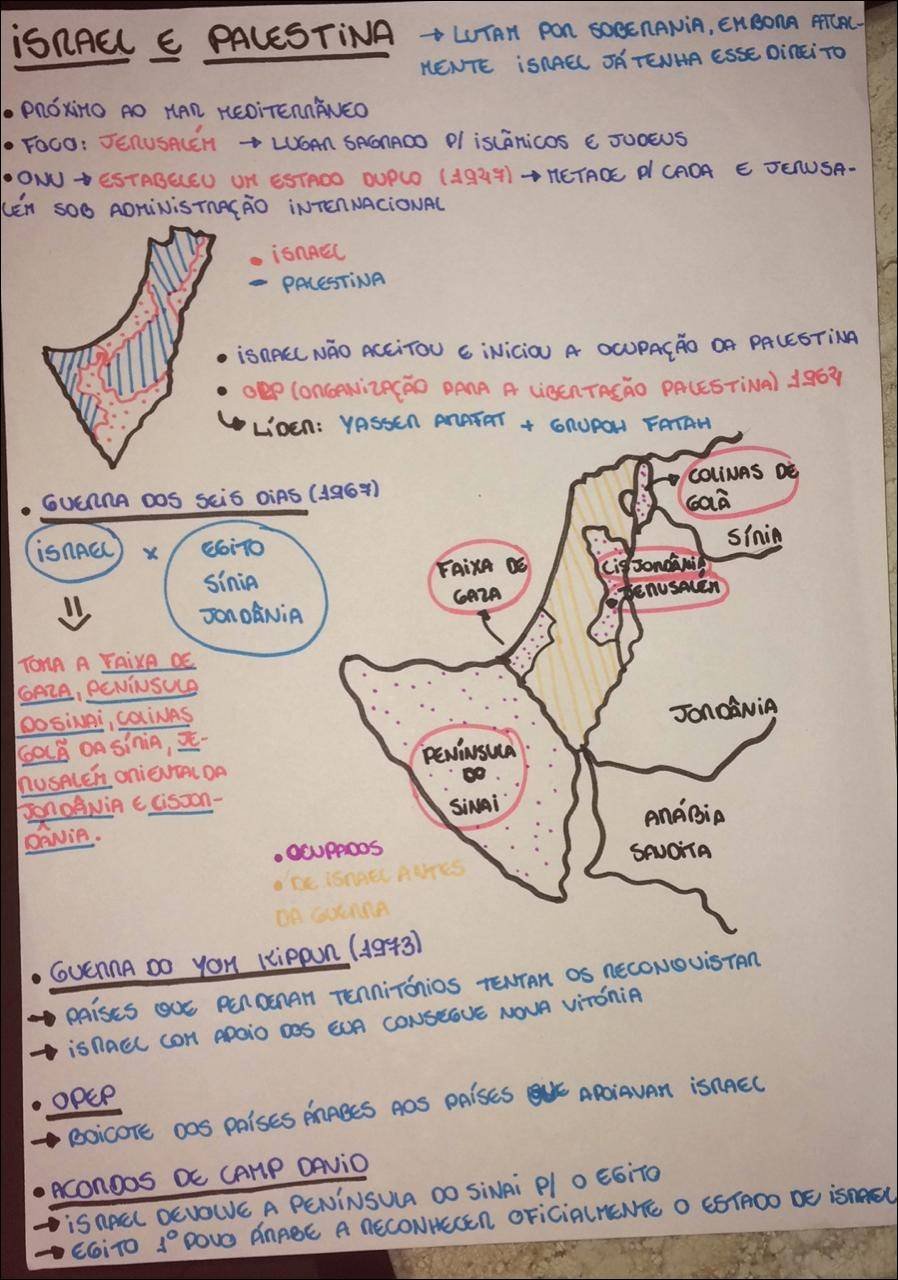 ISRAEL E PALESTINA → LUTAM POR SOBERANIA, EMBORA ATUAL-
MENTE ISRAEL JÁ TENHA ESSE DIREITO
• PRÓXIMO AO MAR MEDITERRÂNEO
• FOCO: JERUSALÉM → LUGAR SAGRADO P/ ISLÂMICOS E JUDEUS
• ONU → ESTABELEU UM ESTADO DUPLO (1947) → METADE P/ CADA E JERUSA-
LÉM SOB ADMINISTRAÇÃO INTERNACIONAL
• ISRAEL
- PALESTINA
• ISRAEL NÃO ACEITOU E INICIOU A OCUPAÇÃO DA PALESTINA
• OLP (ORGANIZAÇÃO PARA A LIBERTAÇÃO PALESTINA) 1964
↳ LÍDER: YASSER ARAFAT + GRUPOH FATAH
• GUERRA DOS SEIS DIAS (1967)
ISRAEL x EGITO
SÍRIA
JORDÂNIA
TOMA A FAIXA DE
GAZA, PENÍNSULA
DO SINAI, COLINAS
GOLÃ DA SÍRIA, JE-
RUSALÉM ORIENTAL DA
JORDÂNIA E CISJOR-
DÂNIA.
COLINAS DE
GOLÃ
SÍRIA
FAIXA DE
GAZA
CISJORDÂNIA
JERUSALÉM
JORDÂNIA
PENÍNSULA
DO
SINAI
ARÁBIA
SAUDITA
• OCUPADOS
• DE ISRAEL ANTES
DA GUERRA
• GUERRA DO YOM KIPPUR (1973)
→ PAÍSES QUE PERDERAM TERRITÓRIOS TENTAM OS RECONQUISTAR
→ ISRAEL COM APOIO DOS EUA CONSEGUE NOVA VITÓRIA
• OPEP
→ BOICOTE DOS PAÍSES ÁRABES AOS PAÍSES QUE APOIAVAM ISRAEL
• ACORDOS DE CAMP DAVID
→ ISRAEL DEVOLVE A PENÍNSULA DO SINAI P/ O EGITO
→ EGITO 1º POVO ÁRABE A RECONHECER OFICIALMENTE O ESTADO DE ISRAEL